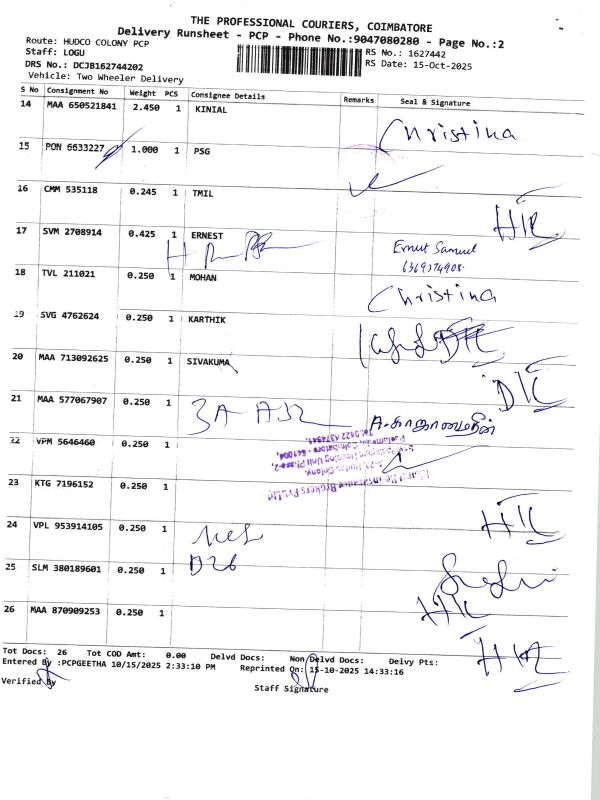 THE PROFESSIONAL COURIERS, COIMBATORE
Delivery Runsheet - PCP - Phone No.:9047080280 - Page No.:2
Route: HUDCO COLONY PCP
Staff: LOGU
DRS No.: DCJB162744202
Vehicle: Two Wheeler Delivery
RS No.: 1627442
RS Date: 15-Oct-2025
S No Consignment No Weight PCS Consignee Details Remarks Seal & Signature
14 MAA 650521841 2.450 1 KINIAL
Christina
15 PON 6633227 1.000 1 PSG
16 CMM 535118 0.245 1 TMIL
17 SVM 2708914 0.425 1 ERNEST
Ernest Samuel
6369374908
18 TVL 211021 0.250 1 MOHAN
Christina
19 SVG 4762624 0.250 1 KARTHIK
20 MAA 713092625 0.250 1 SIVAKUMA
21 MAA 577067907 0.250 1
22 VPM 5646460 0.250 1
Insurance Brokers Pvt Ltd
Hudco Colony,
Housing Unit Phase-2,
Peelamedu, Coimbatore - 641004.
Tel:0422 4374941.
23 KTG 7196152 0.250 1
24 VPL 953914105 0.250 1
25 SLM 380189601 0.250 1
D26
26 MAA 870909253 0.250 1
Tot Docs: 26 Tot COD Amt: 0.00 Delvd Docs: Non Delvd Docs: Delvy Pts:
Entered By :PCPGEETHA 10/15/2025 2:33:10 PM Reprinted On: 15-10-2025 14:33:16
Verified By
Staff Signature